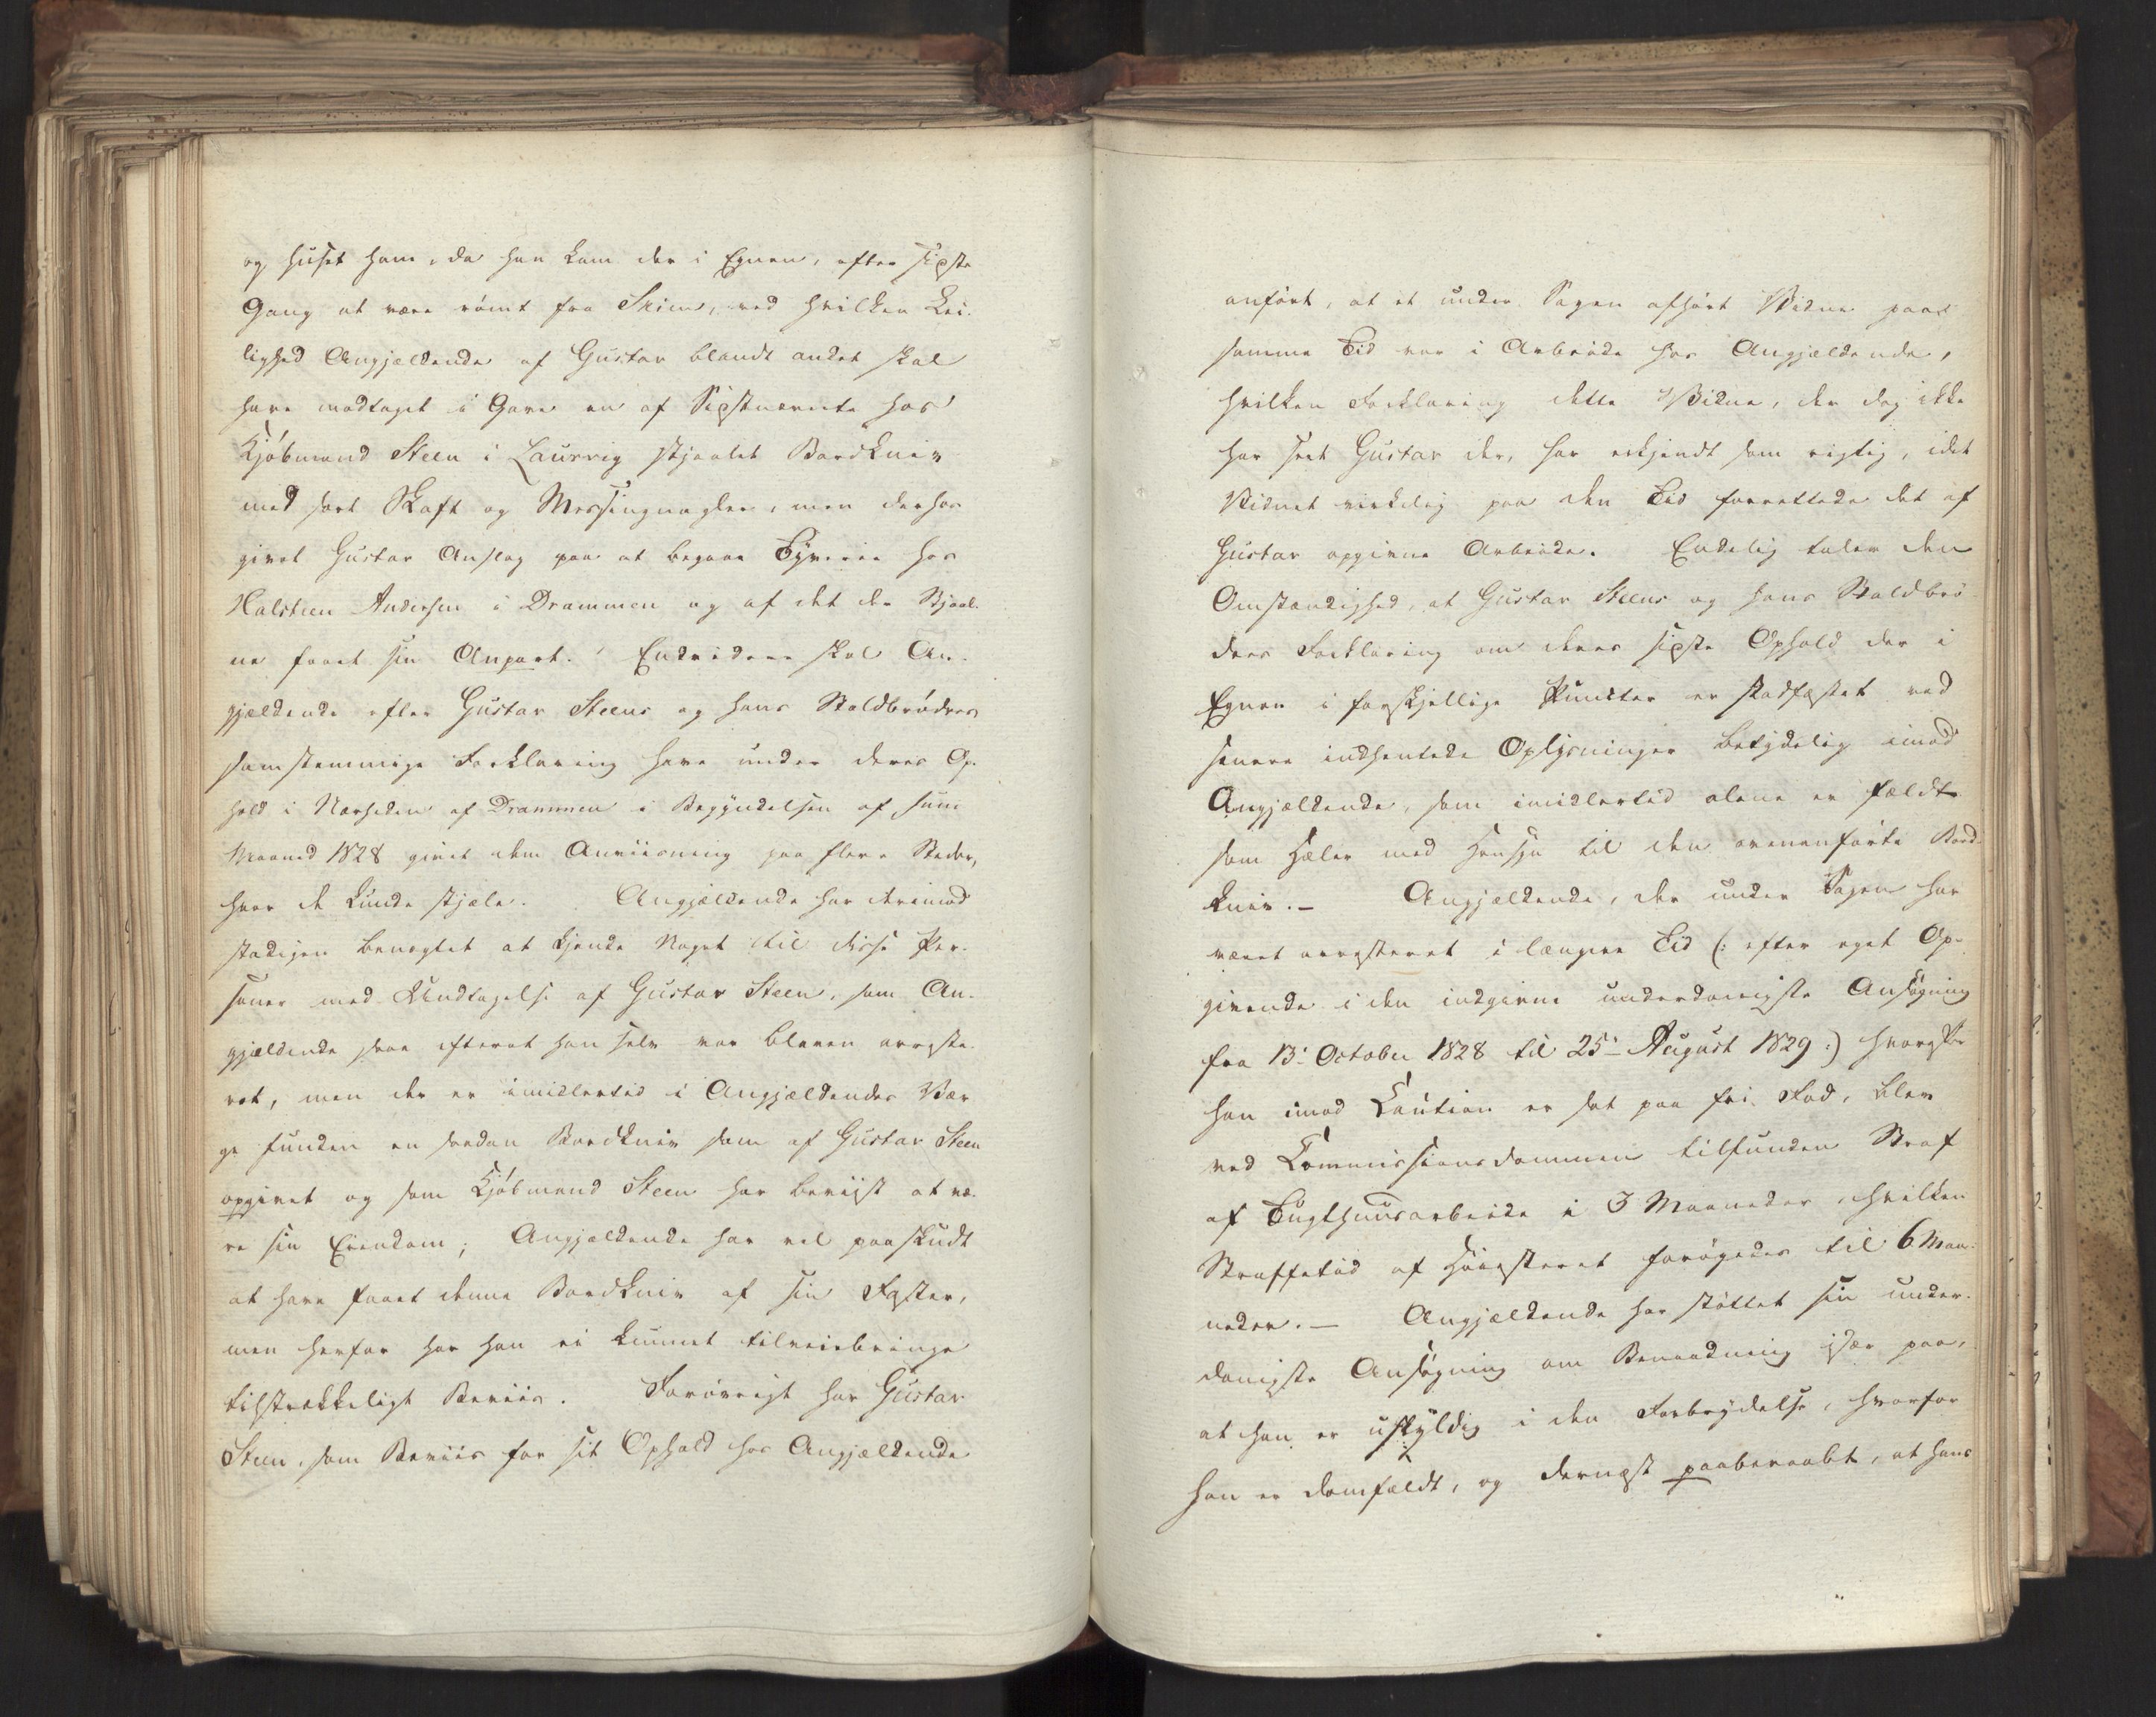 og huset ham, da han kom der i Egnen, efter sidste
Gang at være römt fra Skien, ved hvilken Lei-
lighed Angjældende af Gustav blandt andet skal
have modtaget i Gave en af Sidstnævnte hos
Kjöbmand Steen i Laurvig stjaalet Bordkniv
med sort Skaft og Messingnagler, men derhos
givet Gustav Anslag paa at begaae Tyverie hos
Halstien Andersen i Drammen og af det der Stjaal-
ne faaet sin Anpart. Endvidere skal An-
gjældende efter Gustav Steens og hans Staldbröders
samstemmige Forklaring have under deres Op-
hold i Nærheden af Drammen i Begyndelsen af Juni
Maaned 1828 givet dem Anviisning paa flere Steder,
hvor de kunde stjæle. Angjældende har derimod
stadigen benægtet at kjende Noget til disse Per-
soner med Undtagelse af Gustav Steen, som An-
gjældende saae efterat han selv var bleven arreste-
ret, men der er imidlertid i Angjældendes Vær-
ge funden en saadan Bordkniv som af Gustav Steen
opgivet og som Kjöbmand Steen har beviist at væ-
re sin Eiendom; Angjældende har vel paaskudt
at have faaet denne Bordkniv af sin Söster,
men herfor har han ei kunnet tilveiebringe
tilstrækkeligt Beviis. Forövrigt har Gustav
Steen, som Beviis for sit Ophold hos Angjældende
anfört, at et under Sagen afhört Vidne paa
samme Tid var i Arbeide hos Angjældende,
hvilken Forklaring dette Vidne, der dog ikke
har seet Gustav der, har erkjendt som rigtig, idet
Vidnet virkelig paa den Tid forrettede det af
Gustav opgivne Arbeide. Endelig taler den
Omstændighed, at Gustav Steens og hans Staldbrö-
ders Forklaring om deres sidste Ophold der i
Egnen i forskjellige Puncter er stadfæstet ved
senere indhentede Oplysninger betydelig imod
Angjældende, som imidlertid alene er fældt
som Hæler med Hensyn til den ovenanförte Bord-
kniv. – Angjældende, der under Sagen har
været arresteret i længere Tid (: efter eget Op-
givende i den indgivne underdanigste Ansögning
fra 13. October 1828 til 25. August 1829 :) hvorefter
han imod Caution er sat paa fri Fod, blev
ved Commissionsdommen tilfunden Straf
af Tugthuusarbeide i 3 Maaneder, hvilken
Straffetid af Höiesteret forögedes til 6 Maa-
neder. – Angjældende har stöttet sin under-
danigste Ansögning om Benaadning især paa,
at han er uskyldig i den Forbrydelse, hvorfor
han er domfældt, og dernæst paaberaabt, at hans